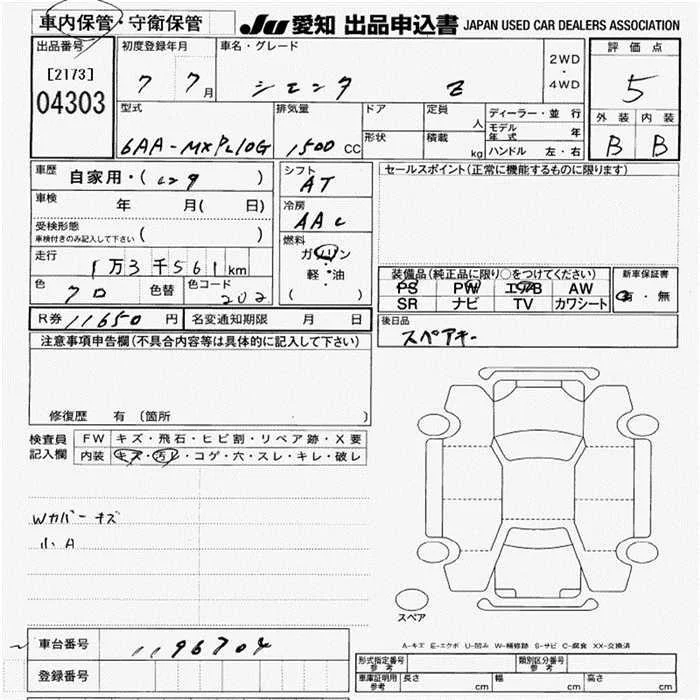 車内保管・守衛保管
JU 愛知 出品申込書 JAPAN USED CAR DEALERS ASSOCIATION
出品番号
[2173]
04303
初度登録年月
7 7月
車名・グレード
シエンタ Z
2WD
・
4WD
評価点
5
外装 内装
B B
型式
6AA-MXPL10G
排気量
1500 CC
ドア
形状
定員
人
積載
kg
ディーラー・並行
モデル年式 年
ハンドル 左・右
車歴
自家用・( レンタ )
車検
年 月( 日)
受検形態
車検付きのみ記入して下さい ( )
走行
1万3千561km
色
クロ
色替
色コード
202
シフト
AT
冷房
AAC
燃料
ガソリン
軽・油
( )
セールスポイント(正常に機能するものに限ります)
装備品(純正品に限り○をつけてください)
PS PW エアB AW
SR ナビ TV カワシート
新車保証書
有・無
R券 11650 円
名変通知期限 月 日
後日品
スペアキー
注意事項申告欄(不具合内容等は具体的に記入して下さい)
修復歴 有 (箇所 )
検査員
記入欄
FW キズ・飛石・ヒビ割・リペア跡・X要
内装 キズ・汚レ・コゲ・穴・スレ・キレ・破レ
Wカバーキズ
小A
スペア
車台番号
1196704
登録番号
A-キズ E-エクボ U-凹み W-補修跡 S-サビ C-腐食 XX-交換済
形式指定番号
参考
類別区分番号
参考
車庫証明用
参考
長さ cm
幅 cm
高さ cm